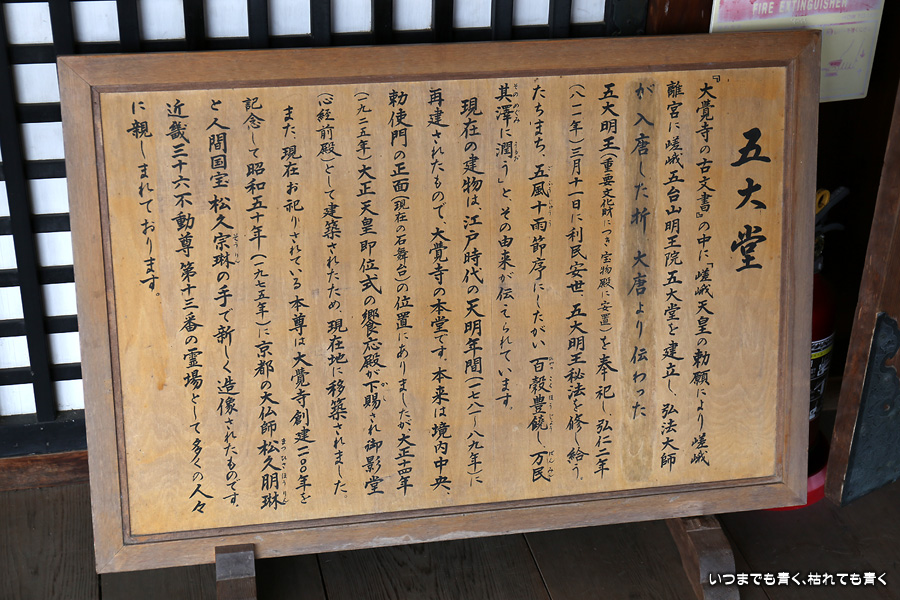 五大堂
『大覚寺の古文書』の中に「嵯峨天皇の勅願により嵯峨
離宮に嵯峨五台山明王院 五大堂を建立し、弘法大師
が入唐した折 大唐より伝わった
五大明王(重要文化財につき宝物殿に安置)を奉祀し、弘仁二年
(八一一年)三月十一日に利民安世・五大明王秘法を修し給う。
たちまち、五風十雨節序にしたがい 百穀豊饒し、万民
其澤に潤う」と、その由来が伝えられています。
現在の建物は、江戸時代の天明年間(一七八一~八九年)に
再建されたもので、大覚寺の本堂です。本来は境内中央、
勅使門の正面(現在の石舞台)の位置にありましたが、大正十四年
(一九二五年)大正天皇即位式の饗応殿が下賜され御影堂
(心経前殿)として建築されたため、現在地に移築されました。
また、現在お祀りされている本尊は大覚寺創建一一〇〇年を
記念して昭和五十年(一九七五年)に京都の大仏師 松久朋琳
と人間国宝 松久宗琳の手で新しく造像されたものです。
近畿三十六不動尊第十三番の霊場として多くの人々
に親しまれております。
FIRE EXTINGUISHER
いつまでも青く、枯れても青く